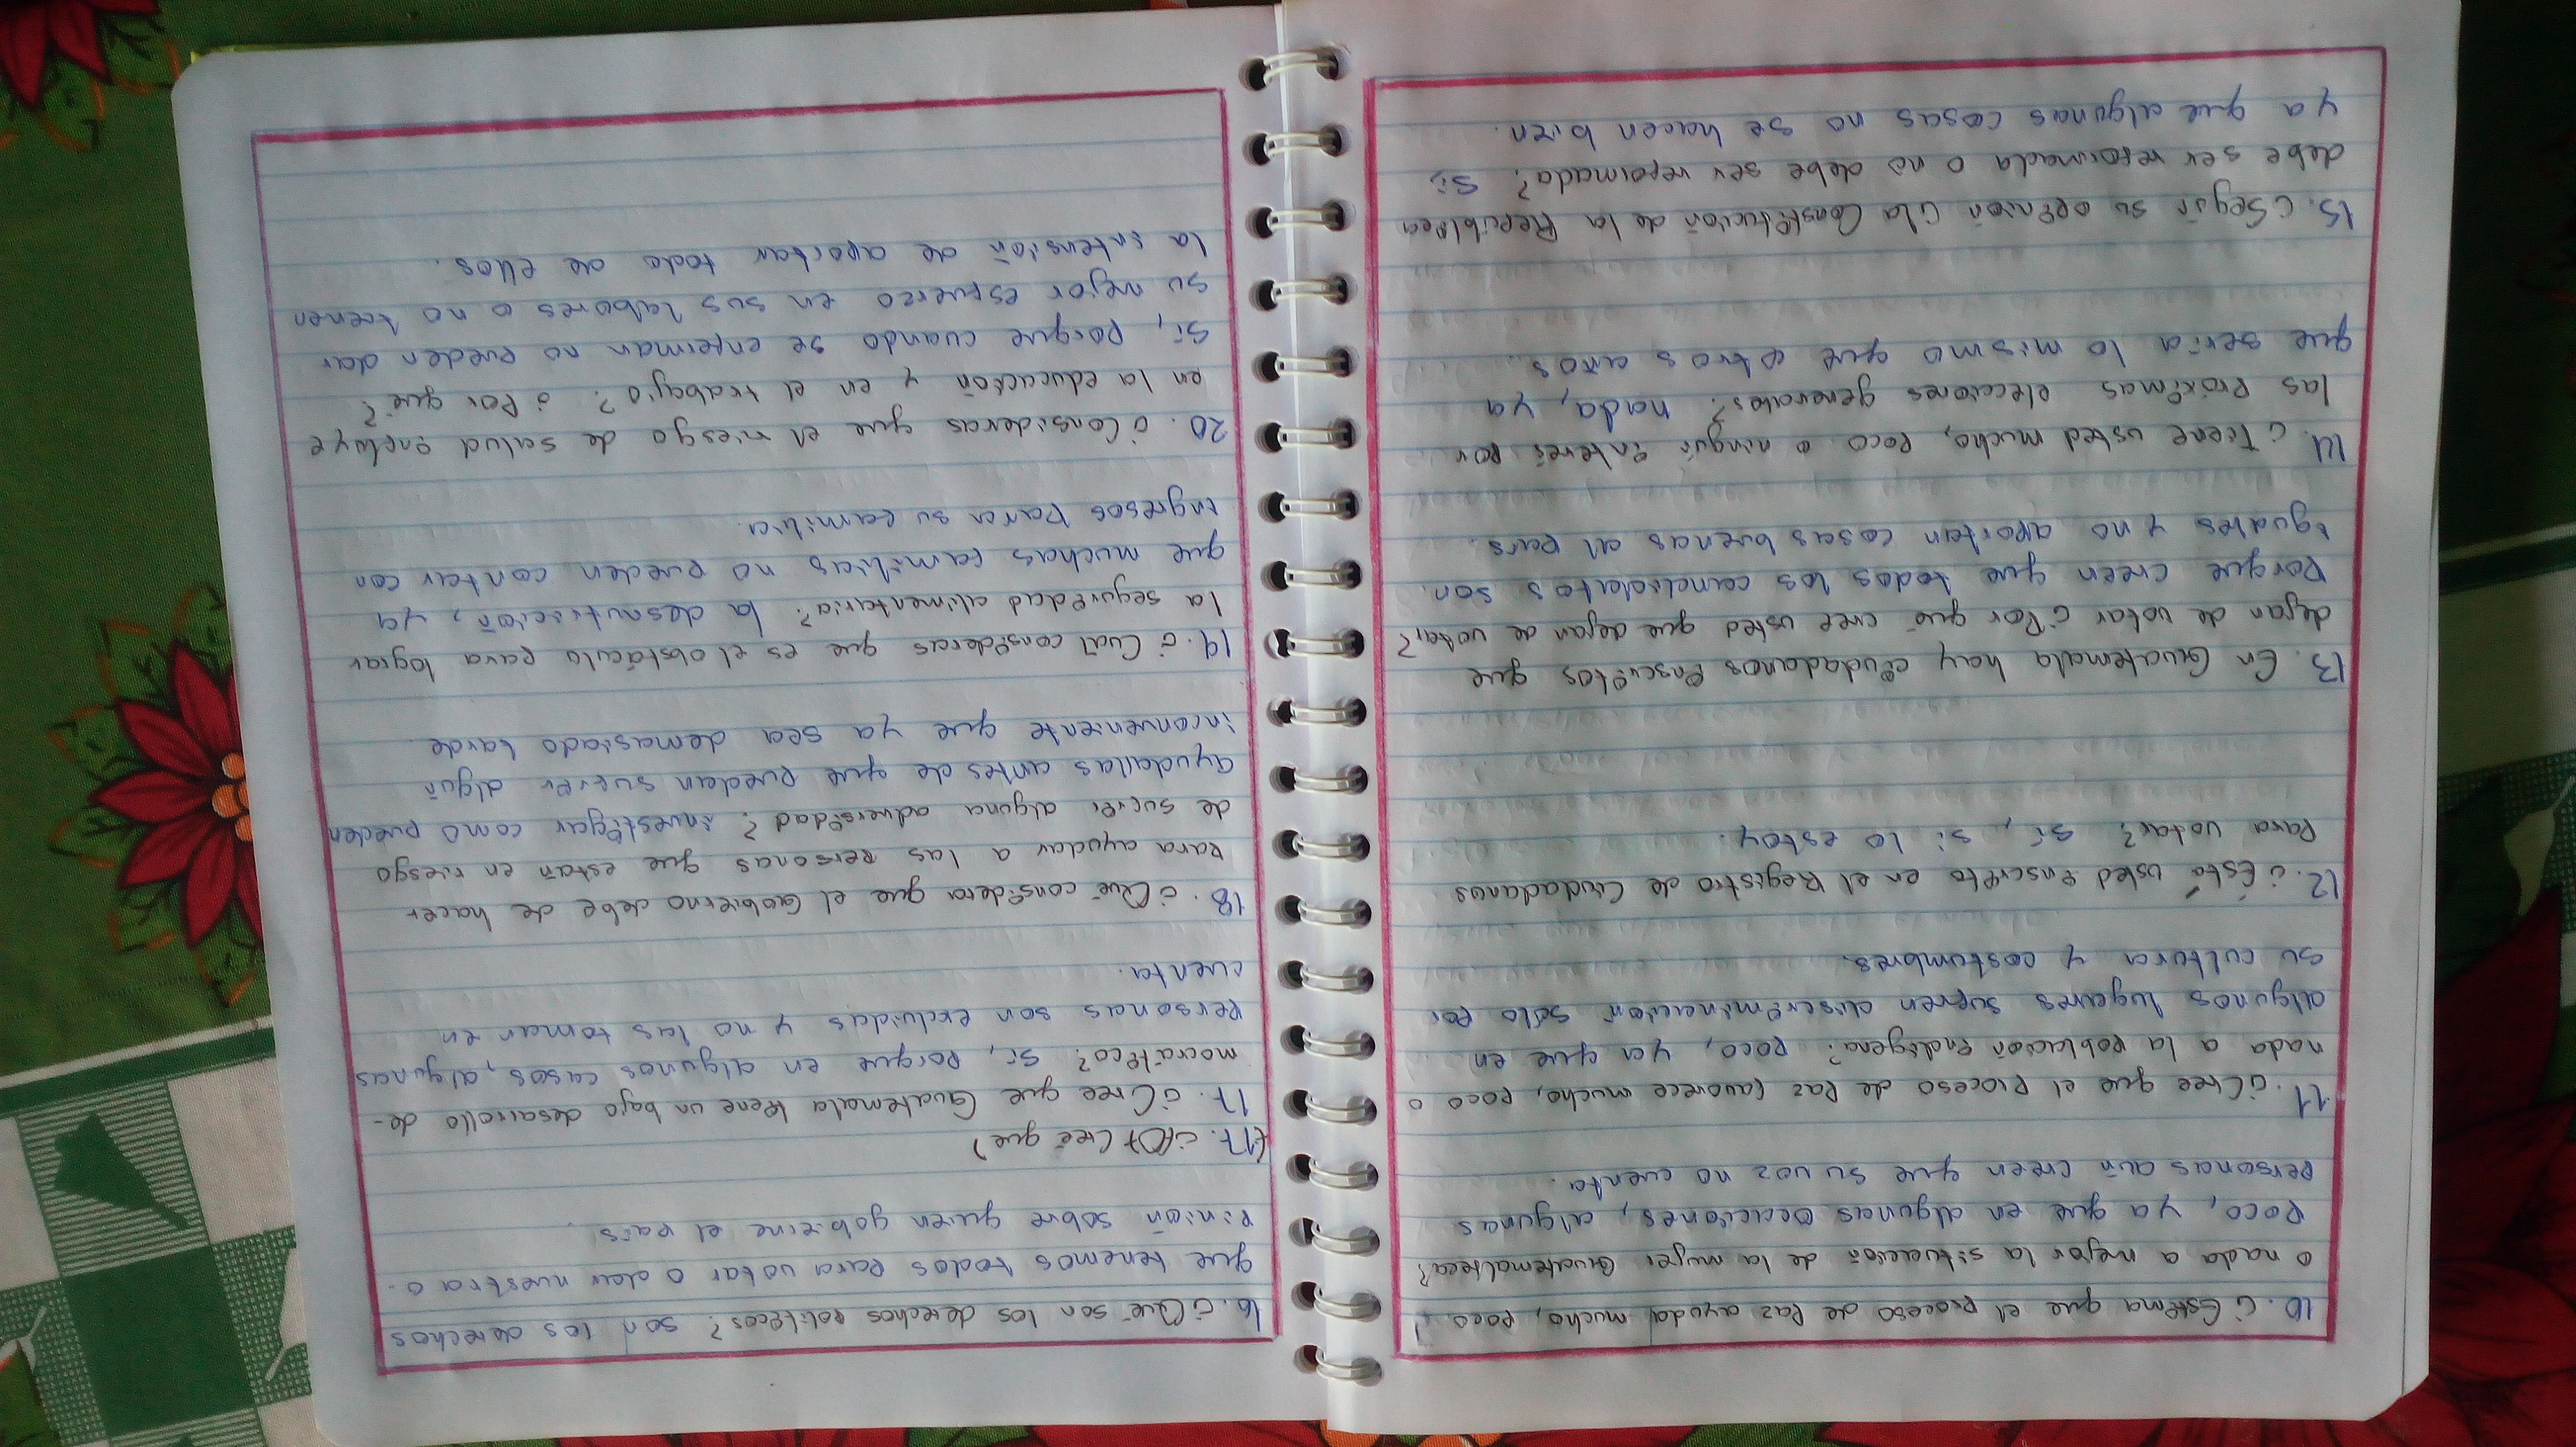 10. ¿Estima que el Proceso de Paz ayuda mucho, poco
o nada a mejor la situación de la mujer Guatemalteca?
Poco, ya que en algunas ocaciones, algunas
personas aún creen que su voz no cuenta.
11. ¿Cree que el Proceso de Paz favorece mucho, poco o
nada a la población indígena? Poco, ya que en
algunos lugares sufren discriminación sólo por
su cultura y costumbres.
12. ¿Está usted inscrito en el Registro de Ciudadanos
Para votar? Sí, si lo estoy.
13. En Guatemala hay ciudadanos inscritos que
dejan de votar ¿Por qué cree usted que dejan de votar?
Porque creen que todos los candidatos son
iguales y no aportan cosas buenas al país.
14. ¿Tiene usted mucho, poco o ningún interés por
las Próximas elecciones generales? nada, ya
que sería lo mismo que otros años.
15. ¿Según su opinión ¿la Constitución de la República
debe ser reformada o no debe ser reformada? Sí,
ya que algunas cosas no se hacen bien.
16. ¿Qué son los derechos políticos? son los derechos
que tenemos todos para votar o dar nuestra o-
pinión sobre quien gobierne el país.
(17. ¿(O) Creé que)
17. ¿Cree que Guatemala tiene un bajo desarrollo de-
mocrático? Sí, Porque en algunos casos, algunas
Personas son excluidas y no las toman en
cuenta.
18. ¿Qué considera que el Gobierno debe de hacer
para ayudar a las personas que están en riesgo
de sufrir alguna adversidad? investigar como pueden
ayudallas antes de que puedan sufrir algún
inconveniente que ya sea demasiado tarde
19. ¿Cuál consideras que es el obstáculo para lograr
la seguridad alimentaria? la desnutrición, ya
que muchas familias no pueden contar con
ingresos para su familia.
20. ¿Consideras que el riesgo de salud incluye
en la educación y en el trabajo? ¿Por qué?
Sí, Porque cuando se enferman no pueden dar
su mejor esfuerzo en sus labores o no tienen
la intensión de aportar todo de ellos.